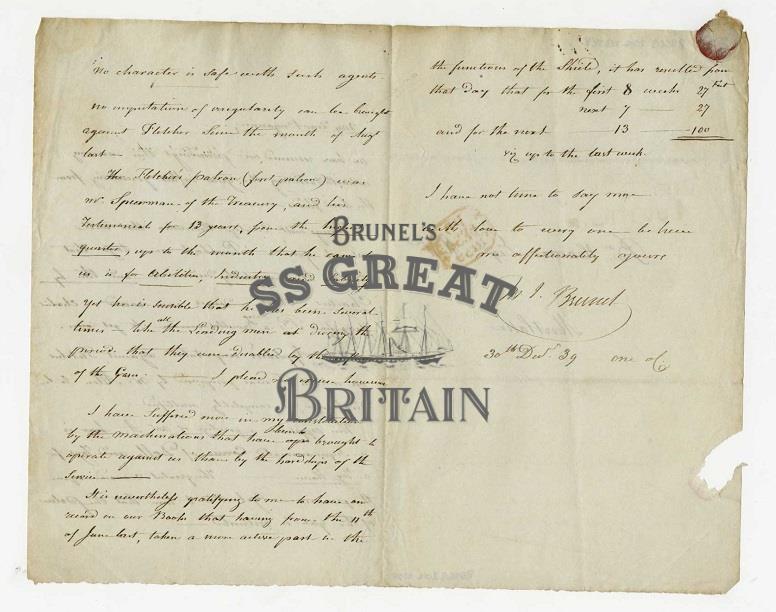 No character is safe with such agents.
no imputation of irregularity can be brought
against Fletcher since the month of Augt
last—
The Fletchers patron (first patron) was
Mr Spearman of the Treasury, and his
Testimonial for 13 years, from the
quarter, up to the month that he came to
us is for Abilities, Industry and
Yet he is sensible that he has been several
times like all the Leading men at during the
period that they were disabled by the
of the Gass. I plead no excuse however
I have suffered more in my constitution
by the machinations that have been brought to
operate against us than by the hardships of the
Service
It is nevertheless gratifying to me to have on
record on our Books that having from the 11th
of June last, taken a more active part in the
the functions of the Shield, it has resulted from
that day that for the first 8 weeks 27 feet
next 7 — 27
and for the next 13 — 100
viz up to the last week.
I have not time to say more
With love to every one believe
me affectionately yours
M I. Brunel
30th Decr 39
one o'C
BRUNEL'S
SS GREAT
BRITAIN